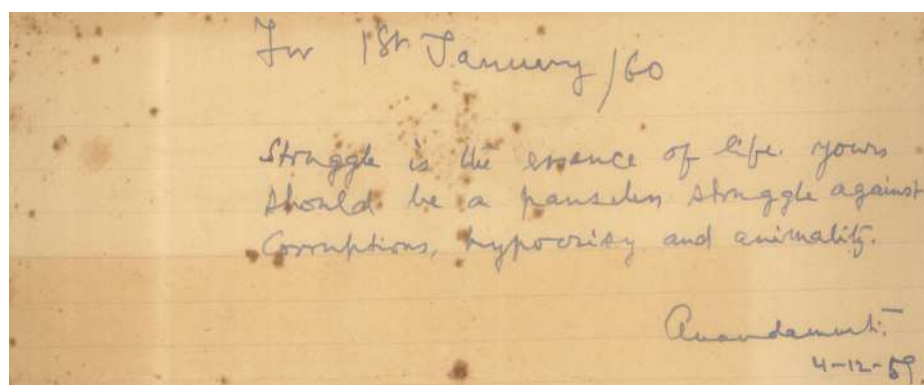 For 1st January/60
Struggle is the essence of life. yours
should be a pauseless struggle against
Corruptions, hypocrisy and animality.
Anandamurti
4-12-59